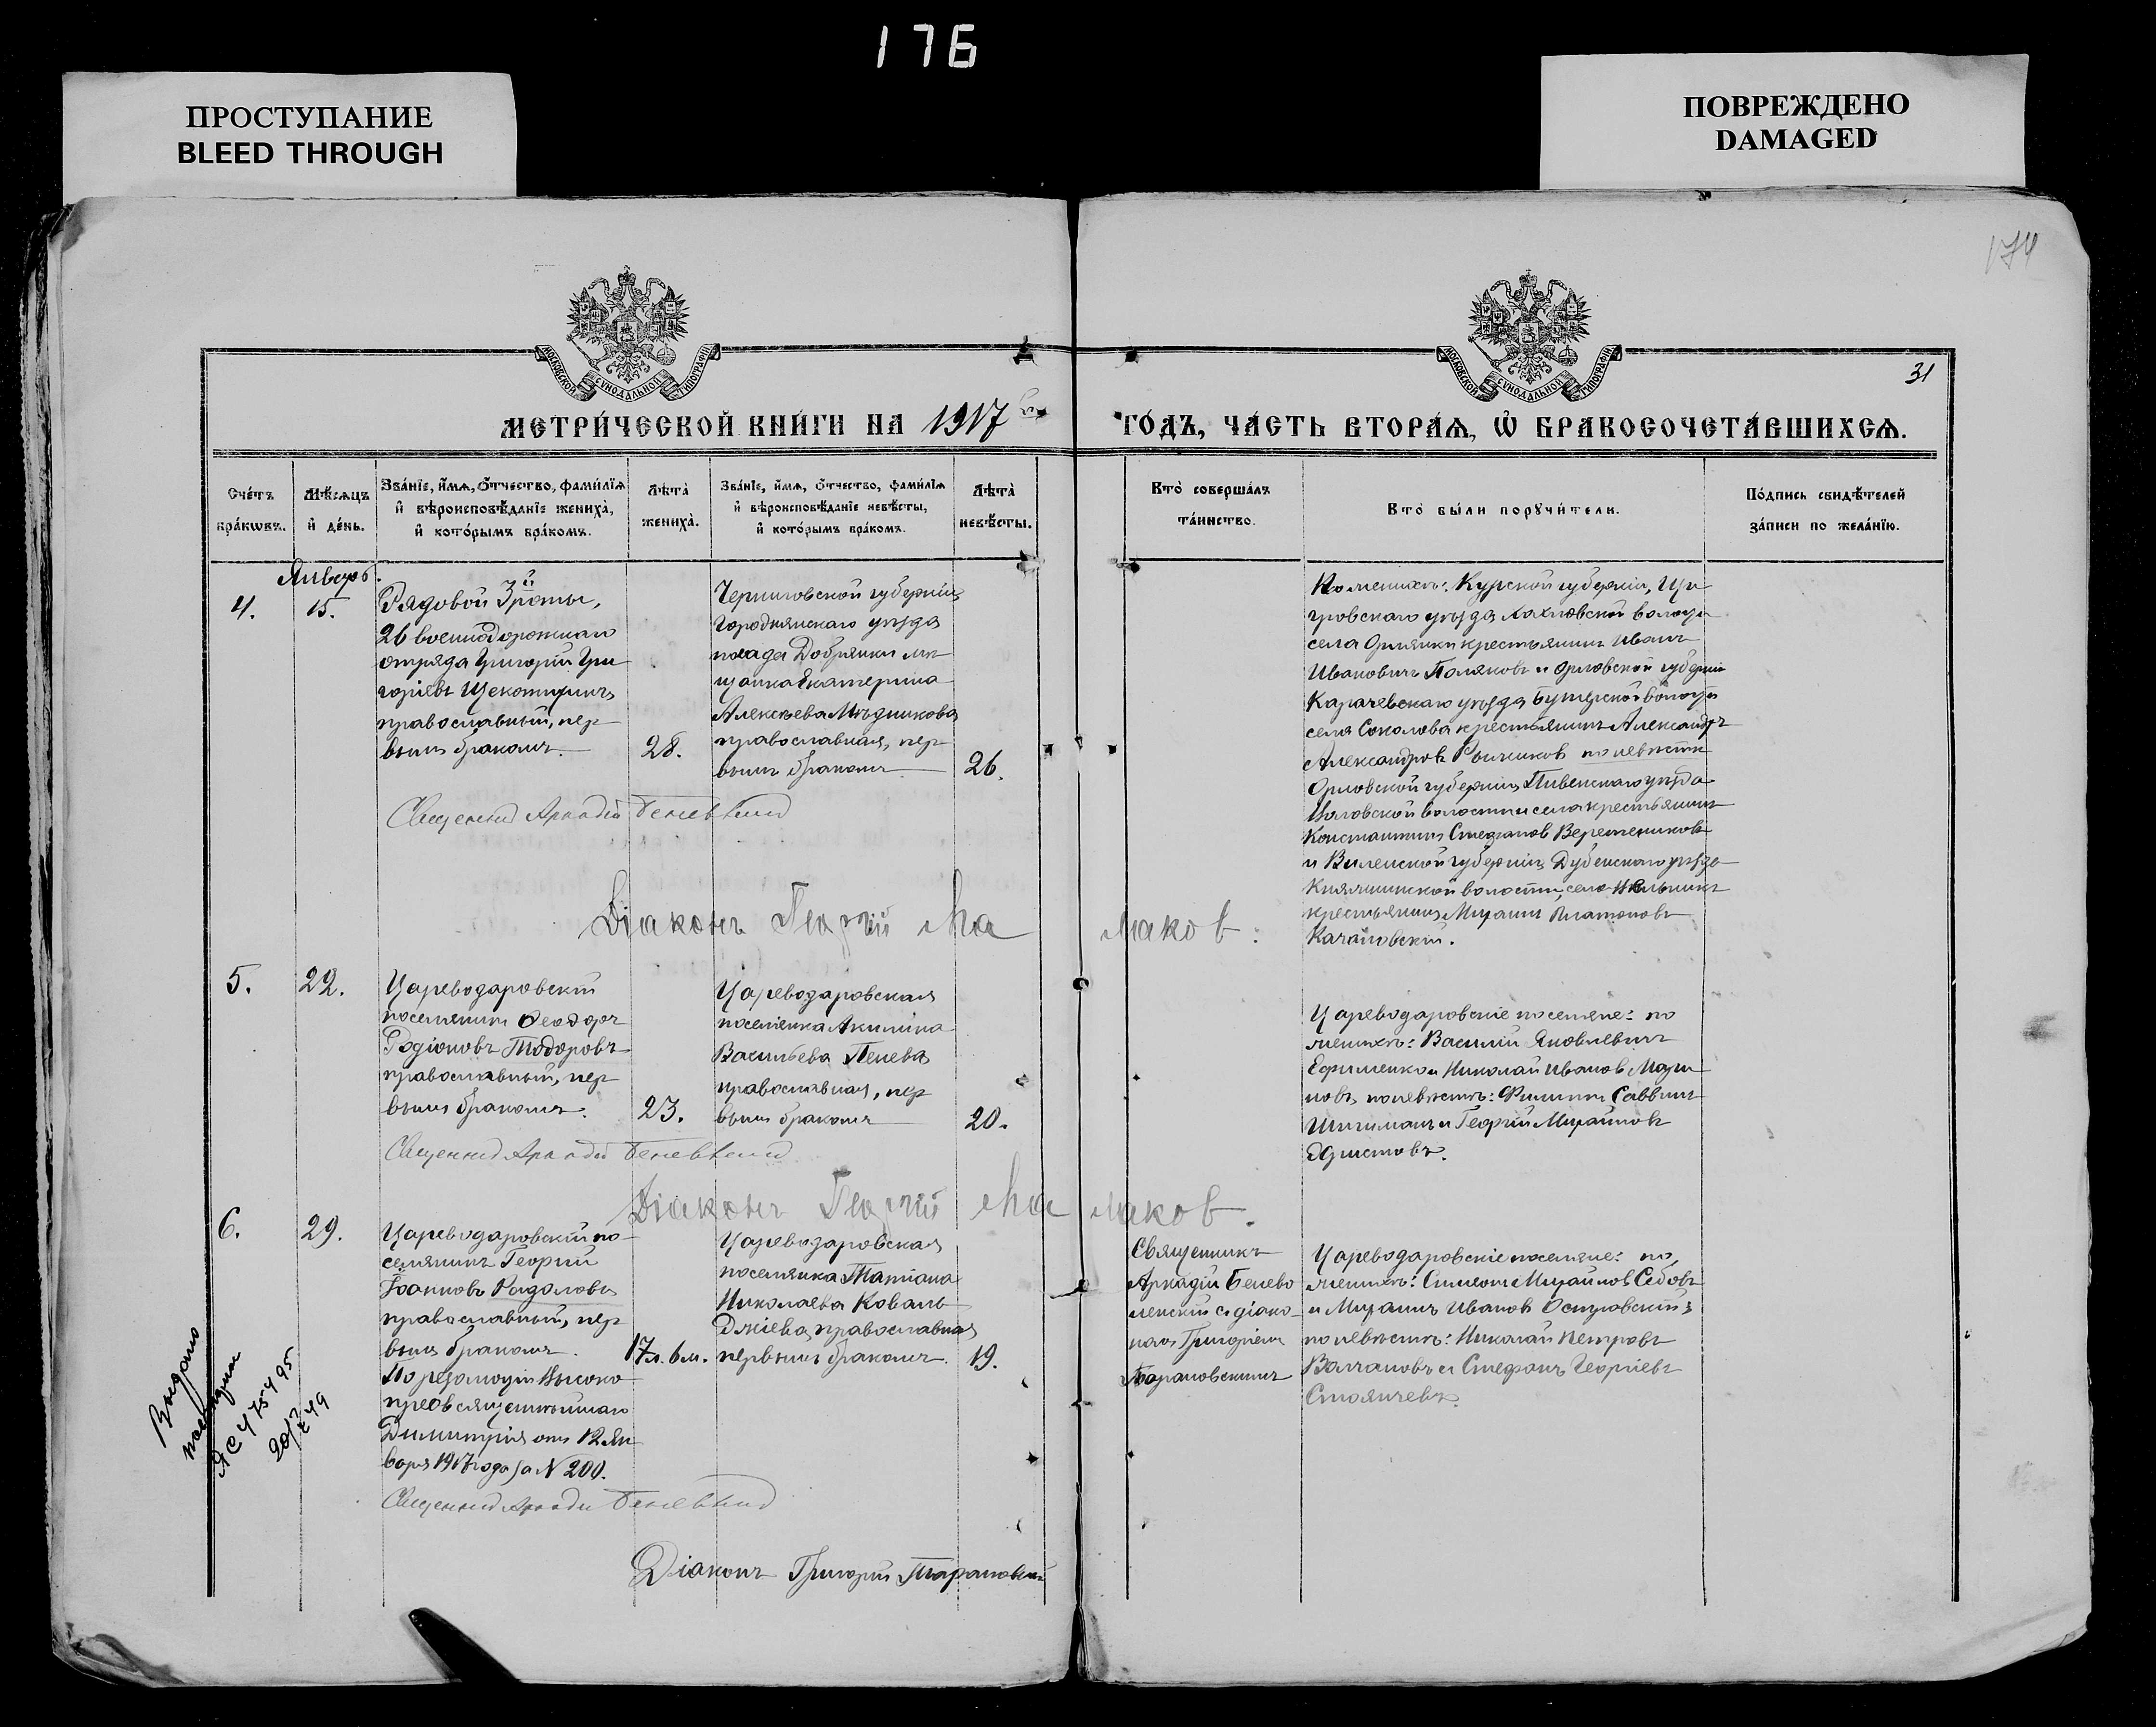 176
ПРОСТУПАНИЕ
BLEED THROUGH
ПОВРЕЖДЕНО
DAMAGED
174
31
МОСКОВСКОЙ СѴНОДАЛЬНОЙ ТИПОГРАФІИ
МОСКОВСКОЙ СѴНОДАЛЬНОЙ ТИПОГРАФІИ
МЕТРИ́ЧЕСКОЙ КНИ́ГИ НА 1917
ГО́ДЪ, ЧА́СТЬ ВТОРА́Ѧ, Ѽ БРАКОСОЧЕТА́ВШИХСѦ.
Сче́тъ
бра́кωвъ.
Мѣ́сѧцъ
и҆ де́нь.
Зва́нїе, и҆́мѧ, ѻ҆́тчество, фами́лїѧ
и҆ вѣроисповѣ́данїе жениха̀,
и҆ кото́рымъ бра́комъ.
Лѣта̀
жениха̀.
Зва́нїе, и҆́мѧ, ѻ҆́тчество, фами́лїѧ
и҆ вѣроисповѣ́данїе невѣ́сты,
и҆ кото́рымъ бра́комъ.
Лѣта̀
невѣ́сты.
Кто̀ соверша́лъ
та́инство.
Кто̀ бы́ли порꙋчи́тели.
По́дпись свидѣ́телей
за́писи по жела́нїю.
Январь.
4.
15.
Рядовой 3й роты,
26 военнодорожнаго
отряда Григорій Гри
горіевъ Щекотихинъ
православный, пер
вымъ бракомъ.
28.
Черниговской губерніи,
Городнянскаго уѣзда
посада Добрянки мѣ
щанка Екатерина
Алексѣева Мѣдникова
православная, пер
вымъ бракомъ
26.
По женихѣ: Курской губерніи, Щи
гровскаго уѣзда волости
села крестьянинъ Иванъ
Ивановичъ Поляковъ и Орловской губерніи
Карачевскаго уѣзда волости
села Соколова крестьянинъ Александръ
Александровъ по невѣстѣ
Орловской губерніи Ливенскаго уѣзда
волости села крестьянинъ
Константинъ Стефановъ Веретенниковъ
и Виленской губерніи, Дубенскаго уѣзда
Княгининской волости, села
крестьянинъ Михаилъ Платоновъ
Качановскій.
Священник Аркадій
Діаконъ Георгій Ма
маков.
5.
22.
Цареводаровскій
поселянинъ Ѳеодоръ
Родіоновъ Тодоровъ
православный, пер
вымъ бракомъ.
23.
Цареводаровская
поселянка Акилина
Васильева Пенева
православная, пер
вымъ бракомъ
20.
Цареводаровскіе поселяне: по
женихѣ: Василій Яковлевичъ
Ефименко и Николай Иванов Мари
новъ, по невѣстѣ: Филиппъ Саввичъ
Шишманъ и Георгій Михайловъ
Христовъ.
Священник Аркадій
Діаконъ Георгій Ма
маков.
6.
29.
Цареводаровскій по
селянинъ Георгій
Іоанновъ Радоловъ
православный, пер
вымъ бракомъ.
По резолюціи Высоко
преосвященнѣйшаго
Димитрія отъ 12 Ян
варя 1917 года за № 200.
17 л. 6 м.
Цареводаровская
поселянка Татіана
Николаева Коваль
джіева, православная
первымъ бракомъ.
19.
Священникъ
Аркадій Бенево
ленскій съ діако
номъ Григоріемъ
Тарановскимъ
Цареводаровскіе поселяне: по
женихѣ: Симеонъ Михайлов Себовъ
и Михаилъ Иванов Островскій;
по невѣстѣ: Николай Петровъ
Волчановъ и Стефанъ Георгіевъ
Стоянчевъ.
Священник Аркадій
Діаконъ Григорій Тарановскій
Выдано